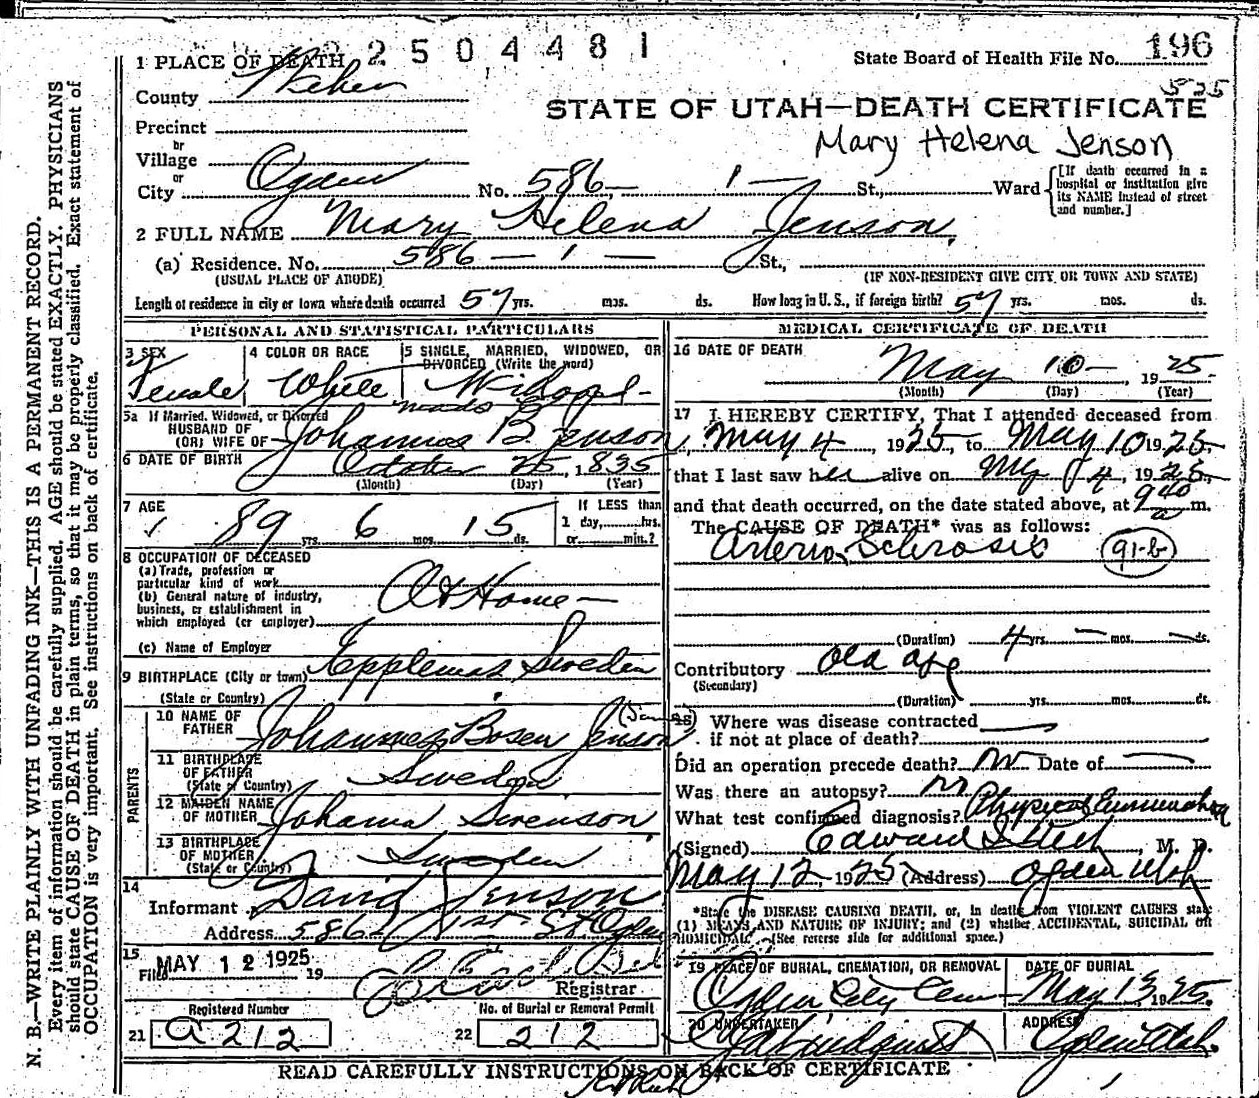 2504481
State Board of Health File No. 196
525
1 PLACE OF DEATH
County Weber
STATE OF UTAH—DEATH CERTIFICATE
Precinct
Mary Helena Jenson
or
Village
or
City Ogden No. 586— 1— St., Ward
[If death occurred in a
hospital or institution give
its NAME instead of street
and number.]
2 FULL NAME Mary Helena Jenson.
(a) Residence. No. 586 — 1 — St.,
(USUAL PLACE OF ABODE) (IF NON-RESIDENT GIVE CITY OR TOWN AND STATE)
Length of residence in city or town where death occurred 57 yrs. mos. ds. How long in U. S., if foreign birth? 57 yrs. mos. ds.
PERSONAL AND STATISTICAL PARTICULARS
3 SEX
Female
4 COLOR OR RACE
White
5 SINGLE, MARRIED, WIDOWED, OR
DIVORCED (Write the word)
Widowed
5a If Married, Widowed, or Divorced
HUSBAND OF
(OR) WIFE OF Johannes B Jenson
6 DATE OF BIRTH October 25, 1835
(Month) (Day) (Year)
7 AGE
89 yrs 6 mos 15 ds.
If LESS than
1 day, hrs.
or min.?
8 OCCUPATION OF DECEASED
(a) Trade, profession or
particular kind of work
(b) General nature of industry,
business, or establishment in
which employed (or employer)
At Home—
(c) Name of Employer
9 BIRTHPLACE (City or town) Sweden
(State or Country)
PARENTS
10 NAME OF
FATHER Johannes Bosen Jenson
11 BIRTHPLACE
OF FATHER
(State or Country) Sweden
12 MAIDEN NAME
OF MOTHER Johanna Swenson
13 BIRTHPLACE
OF MOTHER
(State or Country) Sweden
14
Informant David Jenson
Address 586 1st St Ogden
15
Filed MAY 12 1925 19
Registrar
Registered Number
21 a212
No. of Burial or Removal Permit
22 212
MEDICAL CERTIFICATE OF DEATH
16 DATE OF DEATH
May 10—, 1925.
(Month) (Day) (Year)
17 I HEREBY CERTIFY, That I attended deceased from
May 4, 1925 to May 10 1925
that I last saw her alive on May 4, 1925,
and that death occurred, on the date stated above, at 9 40 a m.
The CAUSE OF DEATH* was as follows:
Arterio Sclerosis 91-b
(Duration) 4 yrs. — mos. — ds.
Contributory old age
(Secondary)
(Duration) yrs. mos. ds.
18 Where was disease contracted
if not at place of death?
Did an operation precede death? no Date of
Was there an autopsy? no
What test confirmed diagnosis? Physical Examination
(Signed) Edward I Rich, M. D.
May 12, 1925 (Address) Ogden Utah
*State the DISEASE CAUSING DEATH, or, in deaths from VIOLENT CAUSES state
(1) MEANS AND NATURE OF INJURY; and (2) whether ACCIDENTAL, SUICIDAL or
HOMICIDAL. (See reverse side for additional space.)
19 PLACE OF BURIAL, CREMATION, OR REMOVAL
Ogden City Cem
DATE OF BURIAL
May 13, 1925.
20 UNDERTAKER
Lindquist
ADDRESS
Ogden Utah.
READ CAREFULLY INSTRUCTIONS ON BACK OF CERTIFICATE
N. B.—WRITE PLAINLY WITH UNFADING INK—THIS IS A PERMANENT RECORD.
Every item of information should be carefully supplied. AGE should be stated EXACTLY. PHYSICIANS
should state CAUSE OF DEATH in plain terms, so that it may be properly classified. Exact statement of
OCCUPATION is very important. See instructions on back of certificate.